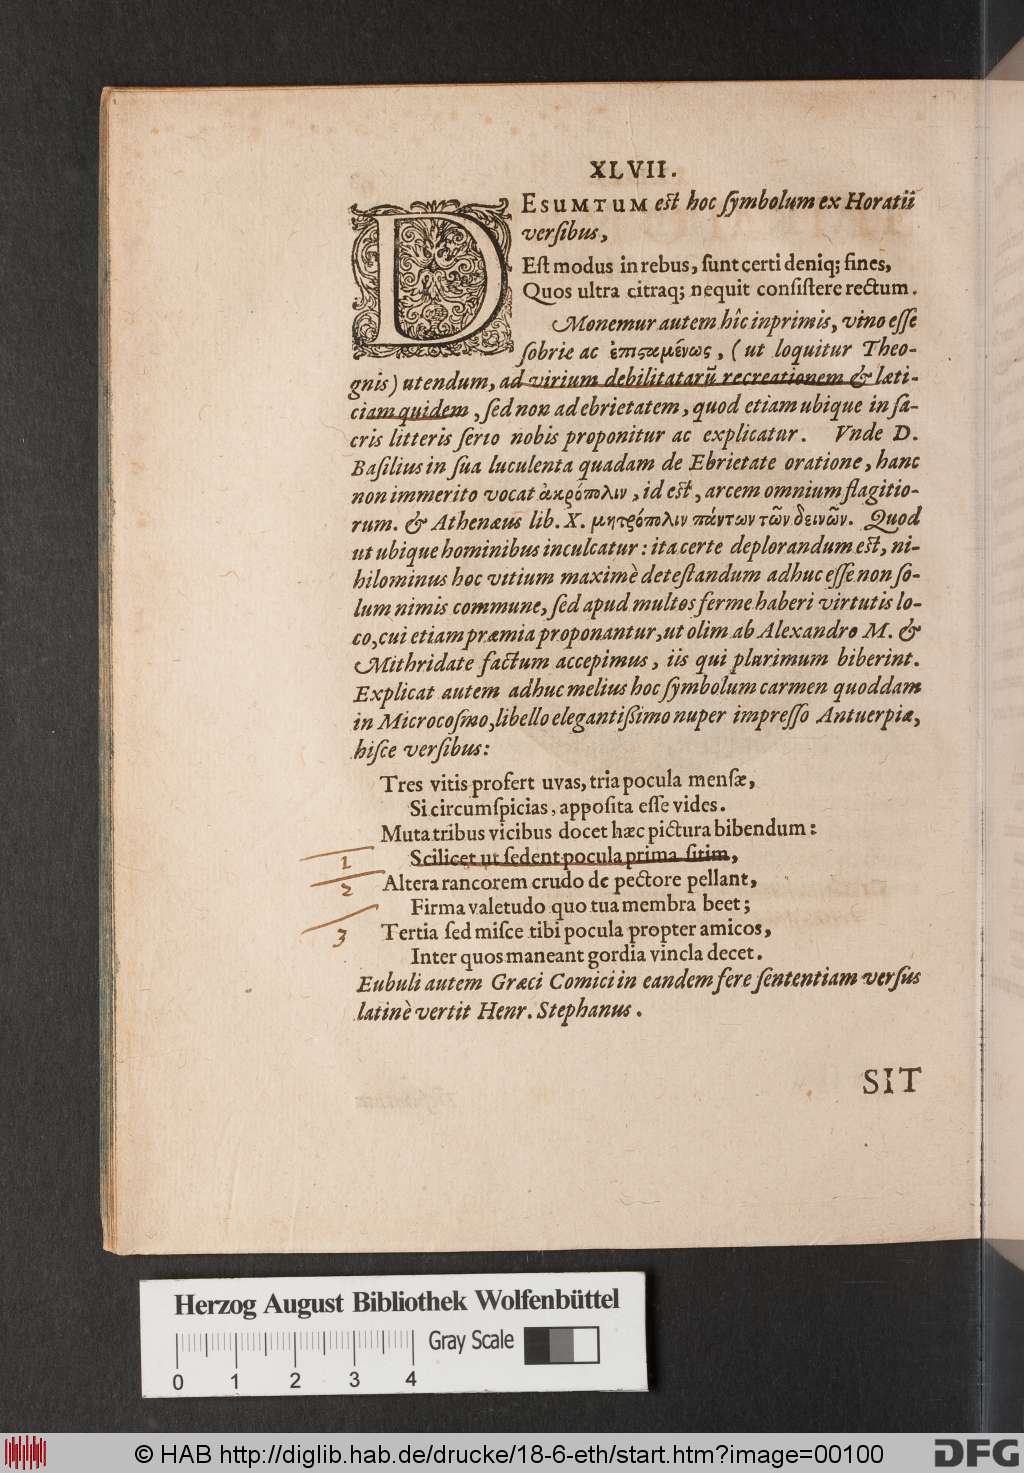 XLVII.
DESUMTUM eſt hoc ſymbolum ex Horatii
verſibus,
Eſt modus in rebus, ſunt certi deniq; fines,
Quos ultra citraq; nequit conſiſtere rectum.
Monemur autem hîc inprimis, vino eſſe
ſobrie ac ἐπιϛαμένως, (ut loquitur Theo-
gnis) utendum, ad virium debilitatarū recreationem & læti-
ciam quidem, ſed non ad ebrietatem, quod etiam ubique in ſa-
cris litteris ſerio nobis proponitur ac explicatur. Vnde D.
Baſilius in ſua luculenta quadam de Ebrietate oratione, hanc
non immerito vocat ἀκρόπολιν, id eſt, arcem omnium flagitio-
rum. & Athenæus lib. X. μητρόπολιν πάντων τῶν δεινῶν. Quod
ut ubique hominibus inculcatur: ita certe deplorandum eſt, ni-
hilominus hoc vitium maximè deteſtandum adhuc eſſe non ſo-
lum nimis commune, ſed apud multos ferme haberi virtutis lo-
co, cui etiam præmia proponantur, ut olim ab Alexandro M. &
Mithridate factum accepimus, iis qui plurimum biberint.
Explicat autem adhuc melius hoc ſymbolum carmen quoddam
in Microcoſmo, libello elegantißimo nuper impreſſo Antuerpiæ,
hiſce verſibus:
Tres vitis profert uvas, tria pocula menſæ,
Si circumſpicias, appoſita eſſe vides.
Muta tribus vicibus docet hæc pictura bibendum:
1 Scilicet ut ſedent pocula prima ſitim,
2 Altera rancorem crudo de pectore pellant,
Firma valetudo quo tua membra beet;
3 Tertia ſed miſce tibi pocula propter amicos,
Inter quos maneant gordia vincla decet.
Eubuli autem Græci Comici in eandem fere ſententiam verſus
latinè vertit Henr. Stephanus.
SIT
Herzog August Bibliothek Wolfenbüttel
Gray Scale
0 1 2 3 4
© HAB http://diglib.hab.de/drucke/18-6-eth/start.htm?image=00100
DFG